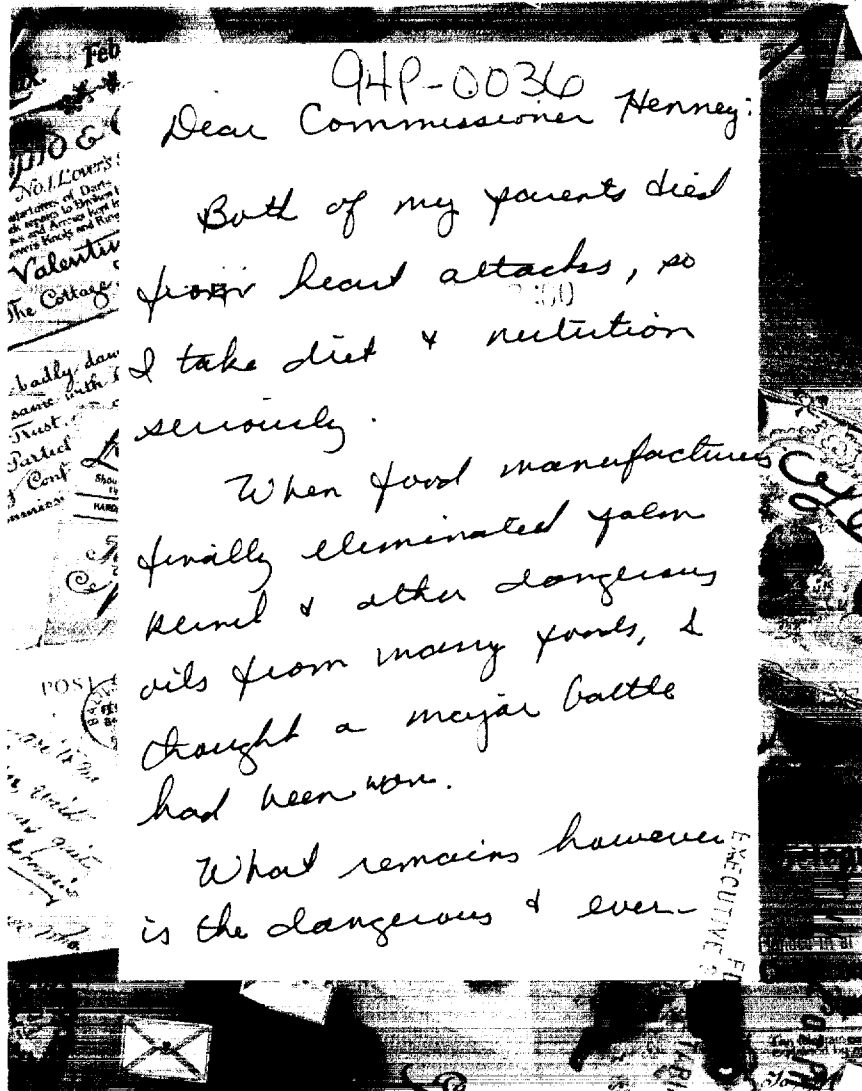 94P-0036
Dear Commissioner Henney:
Both of my parents died
from heart attacks, so
I take diet & nutrition
seriously.
When food manufacturers
finally eliminated palm
kernel & other dangerous
oils from many foods, I
thought a major battle
had been won.
What remains however
is the dangerous & ever-
Feb
No. 1. Lover's
Valentin
The Cottage
badly
same with
Trust.
Parted
Conf
POST
EXECUTIVE